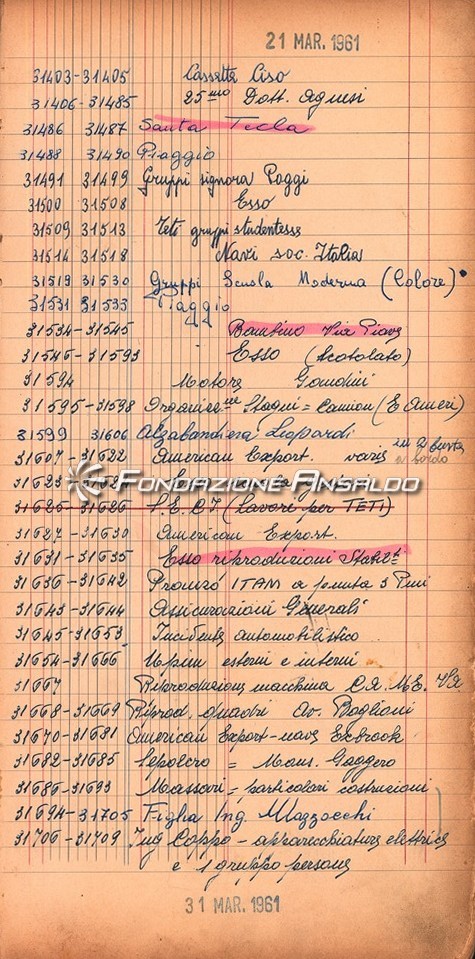 21 MAR. 1961
31403-31405 Cassetta Ciso
31406-31485 25mo Dott. Agnesi
31486 31487 Santa Tecla
31488 31490 Piaggio
31491 31499 Gruppi signora Poggi
31500 31508 Esso
31509 31513 Teti gruppi studentesse
31514 31518 Navi soc. Italia
31519 31530 Gruppi Scuola Moderna (Colore)
31531 31533 Piaggio
31534-31545 Bambino Via Piave
31546-31593 Esso (Scatolato)
31594 Motore Gondini
31595-31598 Organizz.ne Stagni = Camion (E Ameri)
31599 31606 Alzabandiera Leopardi
31607-31622 American Export. varie in 2 busta
a bordo
31623-31624
FONDAZIONE ANSALDO
31625-31626 S.E.CI (Lavori per TETI)
31627-31630 American Export.
31631-31635 Esso riproduzioni Stabil.ti
31636-31642 ITAM a 3 Pini
31643-31644 Assicurazioni Generali
31645-31653 Incidente automobilistico
31654-31666 Upim esterni e interni
31667 Riproduzione macchina
31668-31669 Riprod. quadri Av. Baglioni
31670-31681 American Export-nave Exbrook
31682-31685 Sepolcro = Mons. Gaggero
31686-31693 Massari = particolari costruzioni
31694-31705 Figlia Ing Mazzocchi
31706-31709 Ing Coppo - apparecchiature elettriche
e 1 gruppo persone
31 MAR. 1961